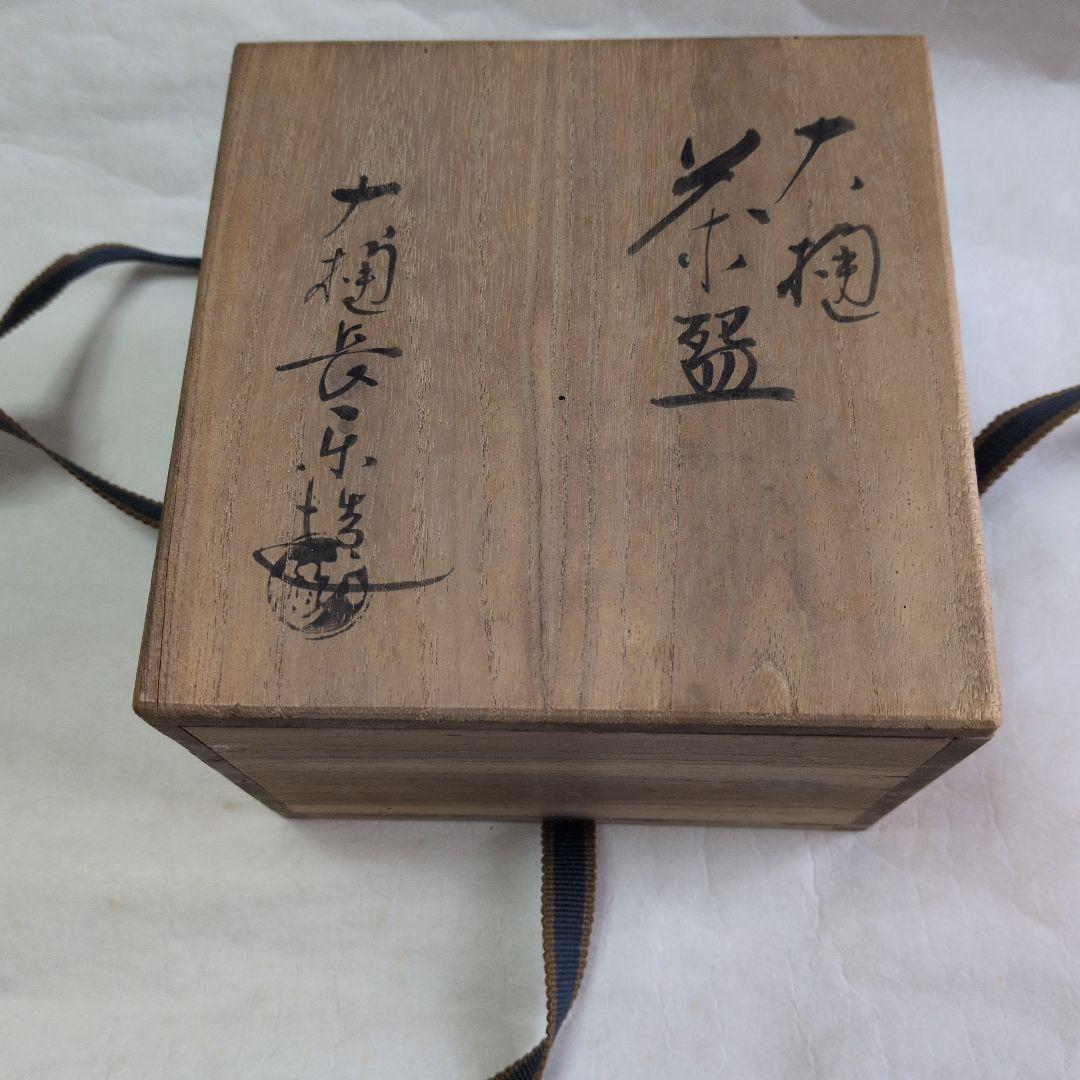 大樋
茶盌
大樋長楽造